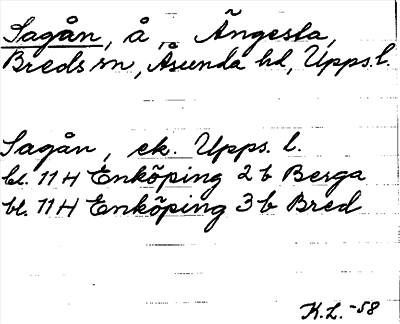 Sagån, å, Ängesta,
Breds sn, Åsunda hd, Upps. l.
Sagån, ek. Upps. l.
bl. 11H Enköping 2b Berga
bl. 11H Enköping 3b Bred
K.L. -58